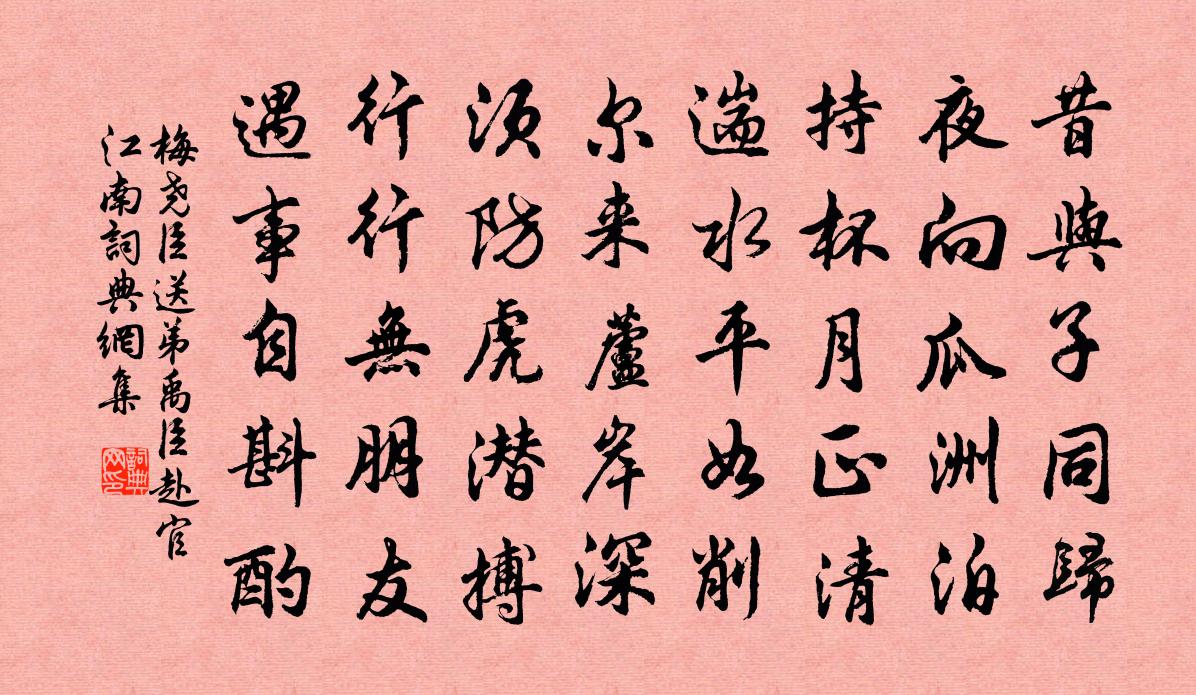 昔與子同歸
夜向瓜洲泊
持杯月正清
遄水平如削
尔来蘆岸深
须防虎潜搏
行行無朋友
遇事自斟酌
梅尧臣送弟禹臣赴官
江南詞典網集
詞典网印